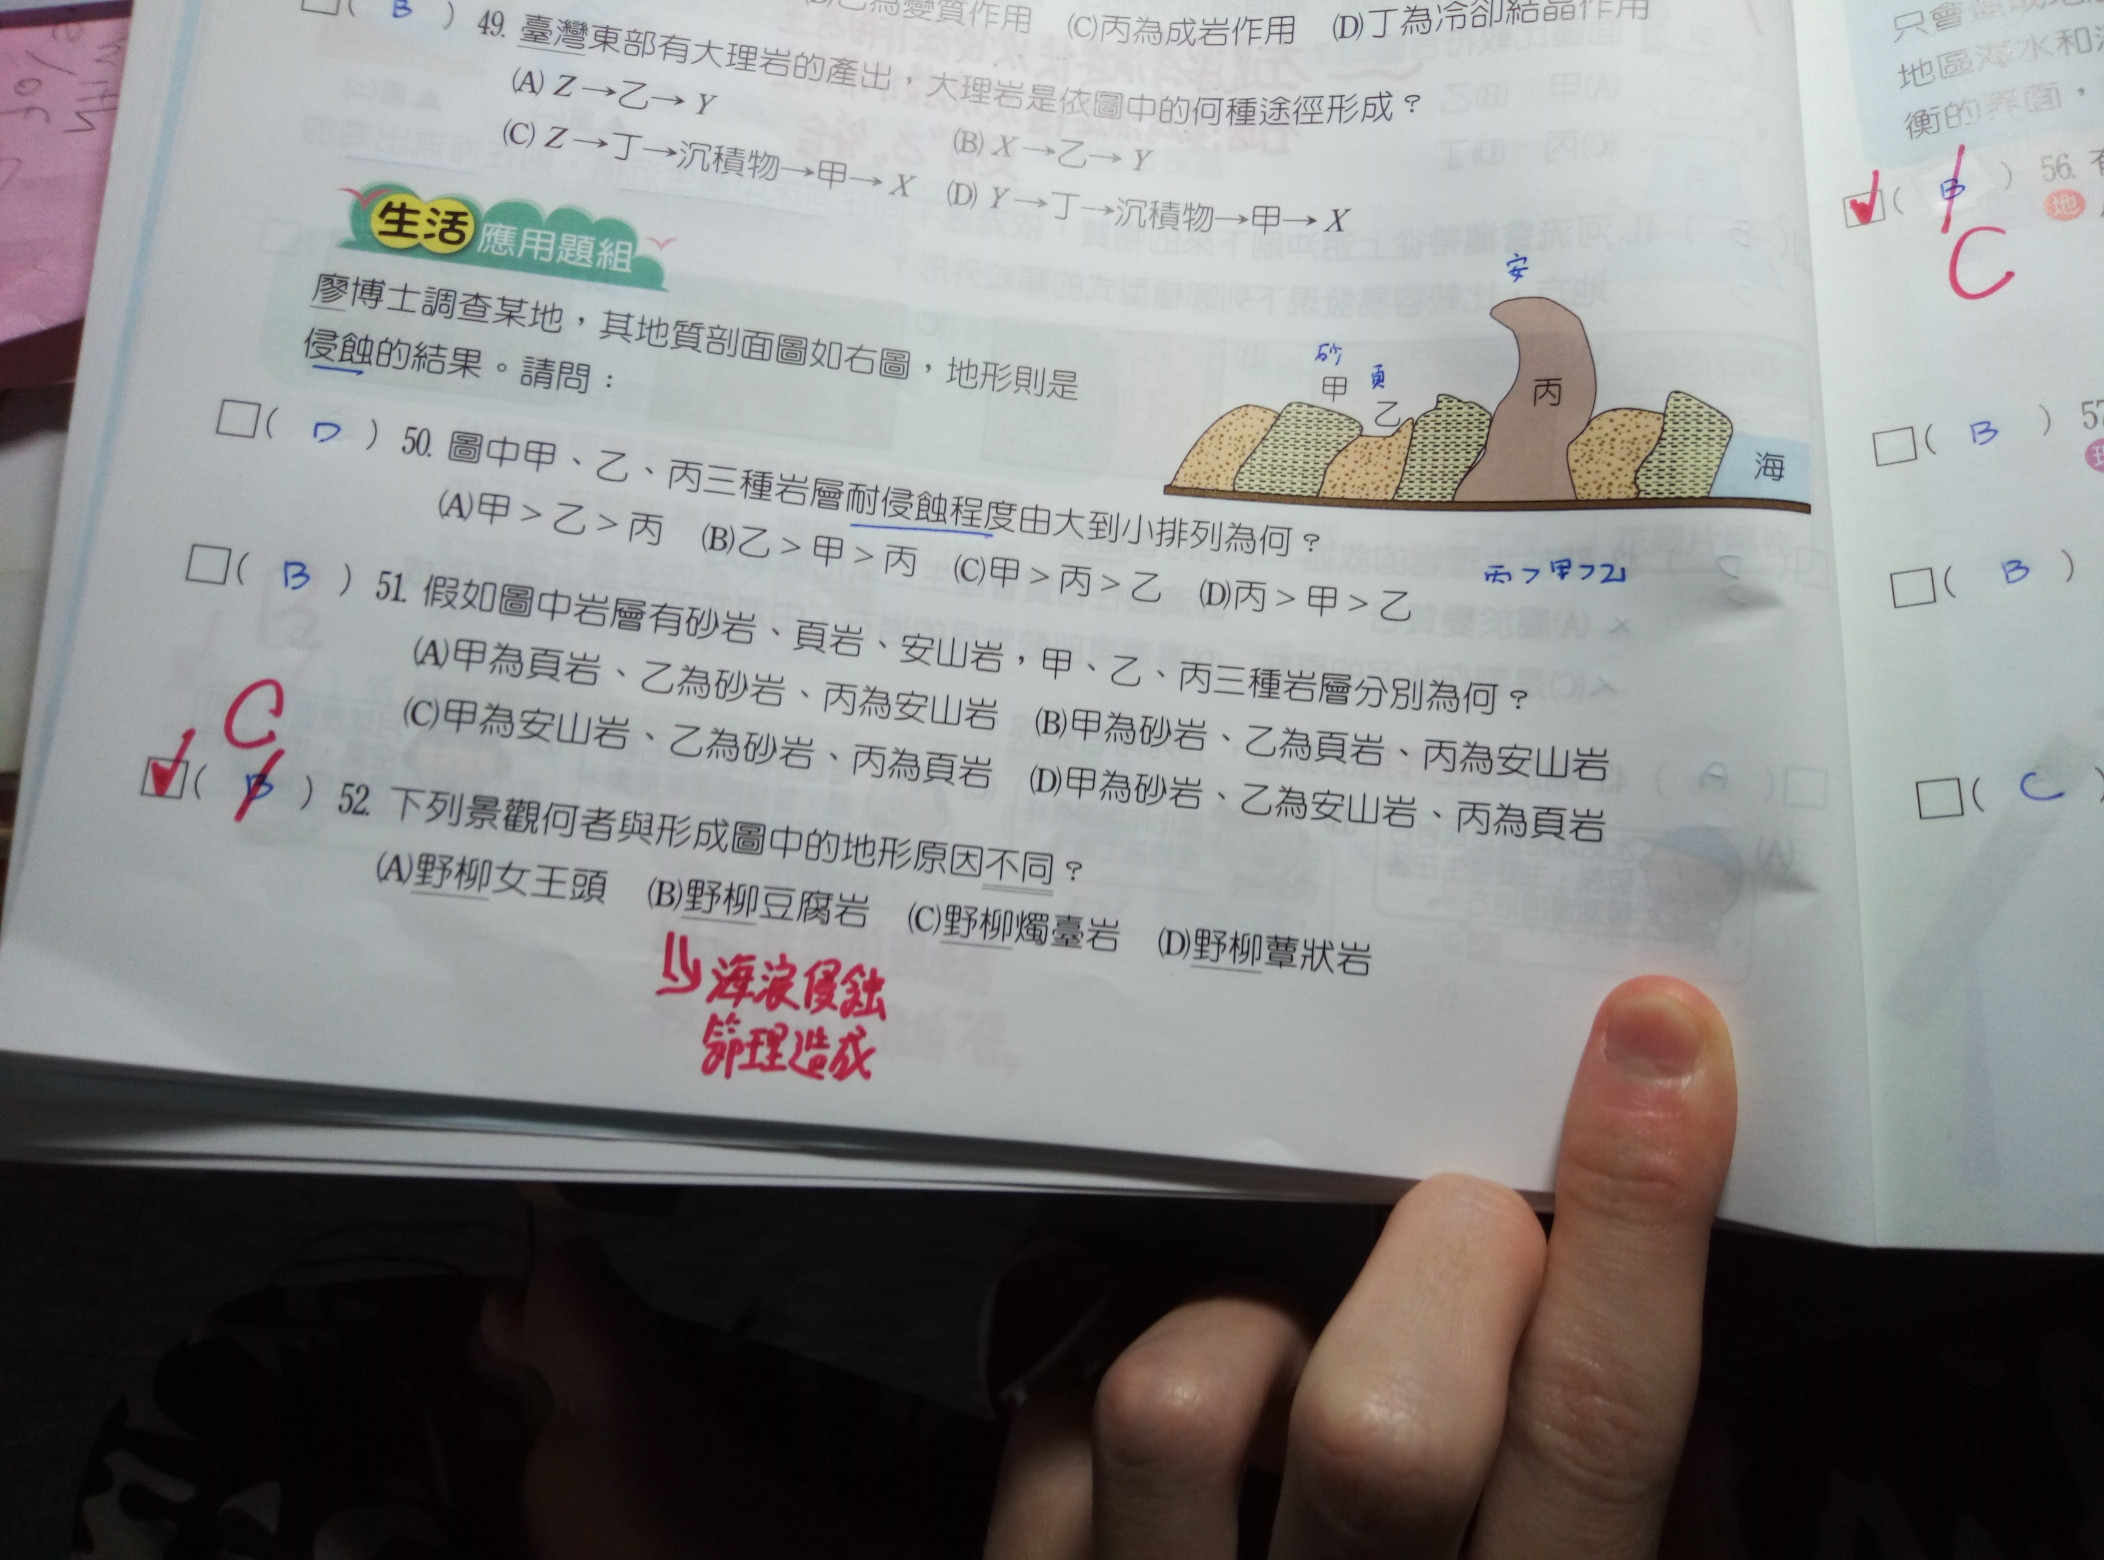 乙為變質作用 (C)丙為成岩作用 (D)丁為冷卻結晶作用
( B ) 49. 臺灣東部有大理岩的產出，大理岩是依圖中的何種途徑形成？
(A) Z→乙→Y (B) X→乙→Y
(C) Z→丁→沉積物→甲→X (D) Y→丁→沉積物→甲→X
生活應用題組
廖博士調查某地，其地質剖面圖如右圖，地形則是
侵蝕的結果。請問：
安
砂
頁
甲
乙
丙
海
□( D ) 50. 圖中甲、乙、丙三種岩層耐侵蝕程度由大到小排列為何？
(A)甲＞乙＞丙 (B)乙＞甲＞丙 (C)甲＞丙＞乙 (D)丙＞甲＞乙
丙＞甲＞乙
□( B ) 51. 假如圖中岩層有砂岩、頁岩、安山岩，甲、乙、丙三種岩層分別為何？
(A)甲為頁岩、乙為砂岩、丙為安山岩 (B)甲為砂岩、乙為頁岩、丙為安山岩
(C)甲為安山岩、乙為砂岩、丙為頁岩 (D)甲為砂岩、乙為安山岩、丙為頁岩
C
□( B ) 52. 下列景觀何者與形成圖中的地形原因不同？
(A)野柳女王頭 (B)野柳豆腐岩 (C)野柳燭臺岩 (D)野柳蕈狀岩
海浪侵蝕
節理造成
只會
地區海水和
衡的界面，
□( B ) 56.
地
C
□( B ) 57
□( B )
□( C )